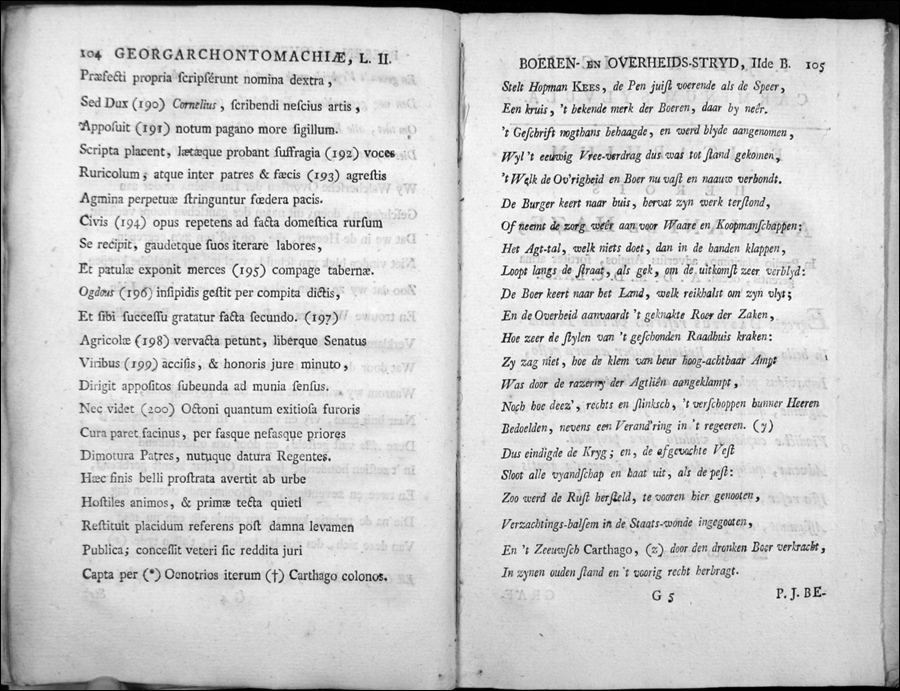 104 GEORGARCHONTOMACHIÆ, L. II.
Præfecti propria ſcripſérunt nomina dextra,
Sed Dux (190) Cornelius, ſcribendi neſcius artis,
Appoſuit (191) notum pagano more ſigillum.
Scripta placent, lætæque probant ſuffragia (192) voces
Ruricolum, atque inter patres & fæcis (193) agreſtis
Agmina perpetuæ ſtringuntur fœdera pacis.
Civis (194) opus repetens ad facta domeſtica rurſum
Se recipit, gaudetque ſuos iterare labores,
Et patulæ exponit merces (195) compage tabernæ.
Ogdous (196) inſipidis geſtit per compita dictis,
Et ſibi ſucceſſu gratatur facta ſecundo. (197)
Agricolæ (198) vervacta petunt, liberque Senatus
Viribus (199) acciſis, & honoris jure minuto,
Dirigit appoſitos ſubeunda ad munia ſenſus.
Nec videt (200) Octoni quantum exitioſa furoris
Cura paret facinus, per fasque nefasque priores
Dimotura Patres, nutuque datura Regentes.
Hæc finis belli proſtrata avertit ab urbe
Hoſtiles animos, & primæ tecta quieti
Reſtituit placidum referens poſt damna levamen
Publica; conceſſit veteri ſic reddita juri
Capta per (*) Oenotrios iterum (†) Carthago colonos.
BOEREN- EN OVERHEIDS-STRYD, IIde B. 105
Stelt Hopman KEES, de Pen juiſt voerende als de Speer,
Een kruis, 't bekende merk der Boeren, daar by neêr.
't Geſchrift nogthans behaagde, en werd blyde aangenomen,
Wyl 't eeuwig Vree-verdrag dus was tot ſtand gekomen,
't Welk de Ov'righeid en Boer nu vaſt en naauw verbondt.
De Burger keert naar huis, hervat zyn werk terſtond,
Of neemt de zorg weêr aan voor Waare en Koopmanſchappen:
Het Agt-tal, welk niets doet, dan in de handen klappen,
Loopt langs de ſtraat, als gek, om de uitkomſt zeer verblyd:
De Boer keert naar het Land, welk reikhalst om zyn vlyt;
En de Overheid aanvaardt 't geknakte Roer der Zaken,
Hoe zeer de ſtylen van 't geſchonden Raadhuis kraken:
Zy zag niet, hoe de klem van heur hoog-achtbaar Ampt
Was door de razerny der Agtliên aangeklampt,
Noch hoe deez', rechts en ſlinksch, 's verſchoppen hunner Heeren
Bedoelden, nevens een Verand'ring in 't regeeren. (y)
Dus eindigde de Kryg; en, de afgevochte Veſt
Sloot alle vyandſchap en haat uit, als de peſt:
Zoo werd de Ruſt herſteld, te vooren hier genooten,
Verzachtings-balſem in de Staats-wonde ingegooten,
En 't Zeeuwſch Carthago, (z) door den dronken Boer verkracht,
In zynen ouden ſtand en 't voorig recht herbragt.
G 5 P. J. BE-